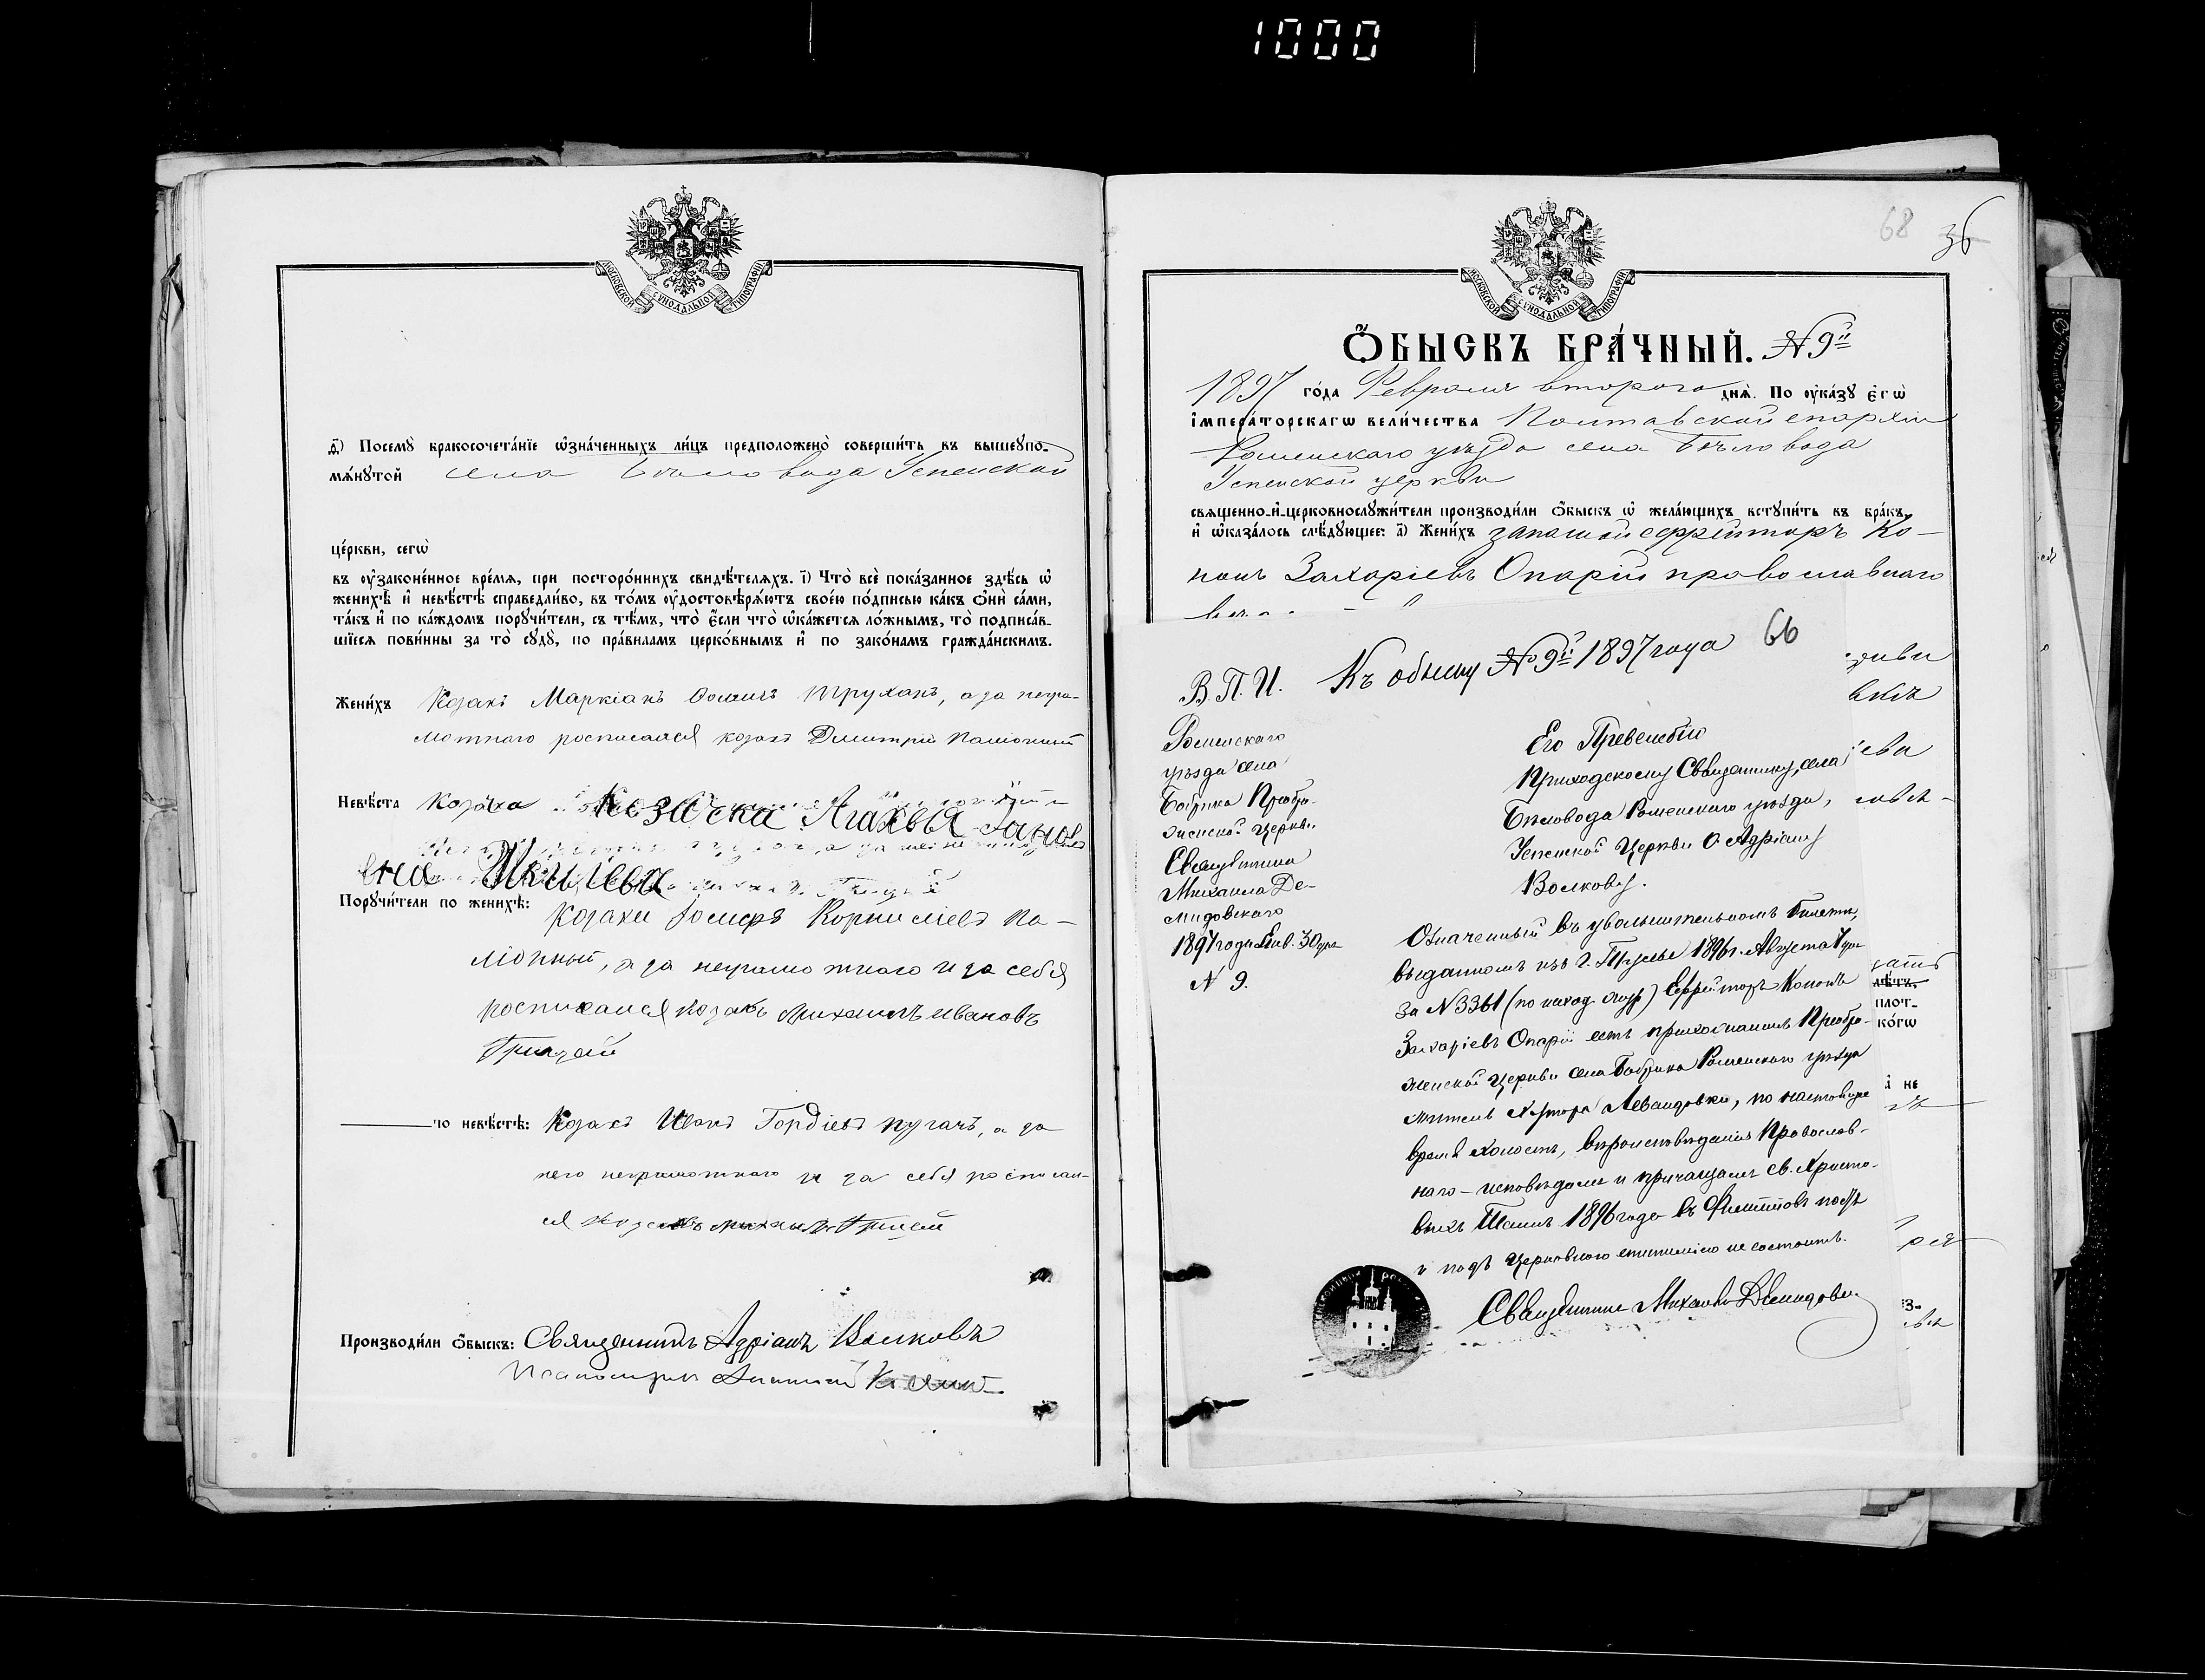 1000
МОСКОВСКОЙ СѴНОДАЛЬНОЙ ТИПОГРАФІИ
д҃і) Посемꙋ̀ бракосочета́нїе ѡ҆зна́ченныхъ ли́цъ предположено̀ соверши́ть въ вышеупо-
мѧ́нꙋтой села Бѣловода Успенской
це́ркви, сегѡ̀
въ ᲂу҆законе́нное вре́мѧ, при посторо́ннихъ свидѣ́телѧхъ. і҃) Что̀ всѐ пока́занное здѣ́сь ѡ҆
женихѣ̀ и҆ невѣ́стѣ справедли́во, въ то́мъ ᲂу҆достовѣрѧ́ютъ свое́ю по́дписью ка́къ ѻ҆нѝ са́ми,
та́къ и҆ по ка́ждомъ порꙋчи́тели, съ тѣ́мъ, что̀ є҆́сли что̀ ѡ҆ка́жетсѧ ло́жнымъ, то̀ подписа́в-
шїесѧ пови́нны за то̀ сꙋдꙋ̀, по пра́виламъ церко́внымъ и҆ по зако́намъ гражда́нскимъ.
Жени́хъ Козакъ Маркіанъ Фоминъ Труханъ, а за негра-
мотнаго росписался козакъ Дмитрій Паліонный
Невѣ́ста Козачка Козачка Агафья Іанов
на
Порꙋчи́тели по женихѣ̀:
Козаки Іосифъ Корниліевъ Па-
ліонный, а за неграмотнаго и за себя
росписался козакъ Михаилъ Ивановъ
Грицай
по невѣ́стѣ: Козакъ Иванъ Гордіевъ Пугачъ, а за
него неграмотнаго и за себя росписал-
ся козакъ Михаилъ Грицай
Производи́ли ѻ҆́быскъ: Священникъ Адріанъ Волковъ
Псаломщикъ
68 36
МОСКОВСКОЙ СѴНОДАЛЬНОЙ ТИПОГРАФІИ
Ѻ҆́БЫСКЪ БРА́ЧНЫЙ. №9й
1897 го́да Февраля второго днѧ̀. По ᲂу҆ка́зꙋ є҆гѡ̀
і҆мпера́торскагѡ вели́чества Полтавской епархіи
Роменскаго уѣзда села Бѣловода
Успенской церкви
свѧщенно-и҆-церковнослꙋжи́тели производи́ли ѻ҆́быскъ ѡ҆ жела́ющихъ встꙋпи́ть въ бра́къ,
и҆ ѡ҆каза́лось слѣ́дꙋющее: а҃) Жени́хъ запасной ефрейторъ Ко-
нонъ Захаріевъ Опарій православнаго
66
Къ обыску №9й 1897 года
В. П. И.
Роменскаго
уѣзда села
Бобрика Преобра-
женской Церкви
Священника
Михаила Де-
мидовскаго
1897 года Янв. 30 дня
N 9.
Его Превелебію
Приходскому Священнику, села
Бѣловода Роменскаго уѣзда,
Успенской Церкви О. Адріану
Волкову.
Означенный въ увольнительномъ билетѣ,
выданномъ изъ г. 1896 г. Августа 7 дня
за N 3361 (по наход. ) Ефрейторъ Кононъ
Захаріевъ Опарій есть прихожанинъ Преобра-
женской Церкви села Бобрика Роменскаго уѣзда
житель Хутора по настоящее
время холостъ, вѣроисповѣданія Православ-
наго – исповѣдался и причащался св. Христо-
выхъ Таинъ 1896 года въ Филипповъ постъ
и подъ Церковною епитиміею не состоитъ.
Священникъ Михаилъ Демидовск.
лѣ́тъ,
плот-
ко́гѡ
не